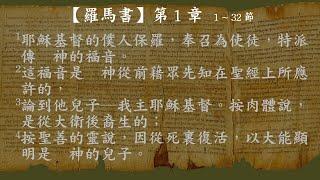 【羅馬書】第 1 章 1～32 節
1耶穌基督的僕人保羅，奉召為使徒，特派
傳　神的福音。
2這福音是　神從前藉眾先知在聖經上所應
許的，
3論到他兒子─我主耶穌基督。按肉體說，
是從大衛後裔生的；
4按聖善的靈說，因從死裏復活，以大能顯
明是　神的兒子。